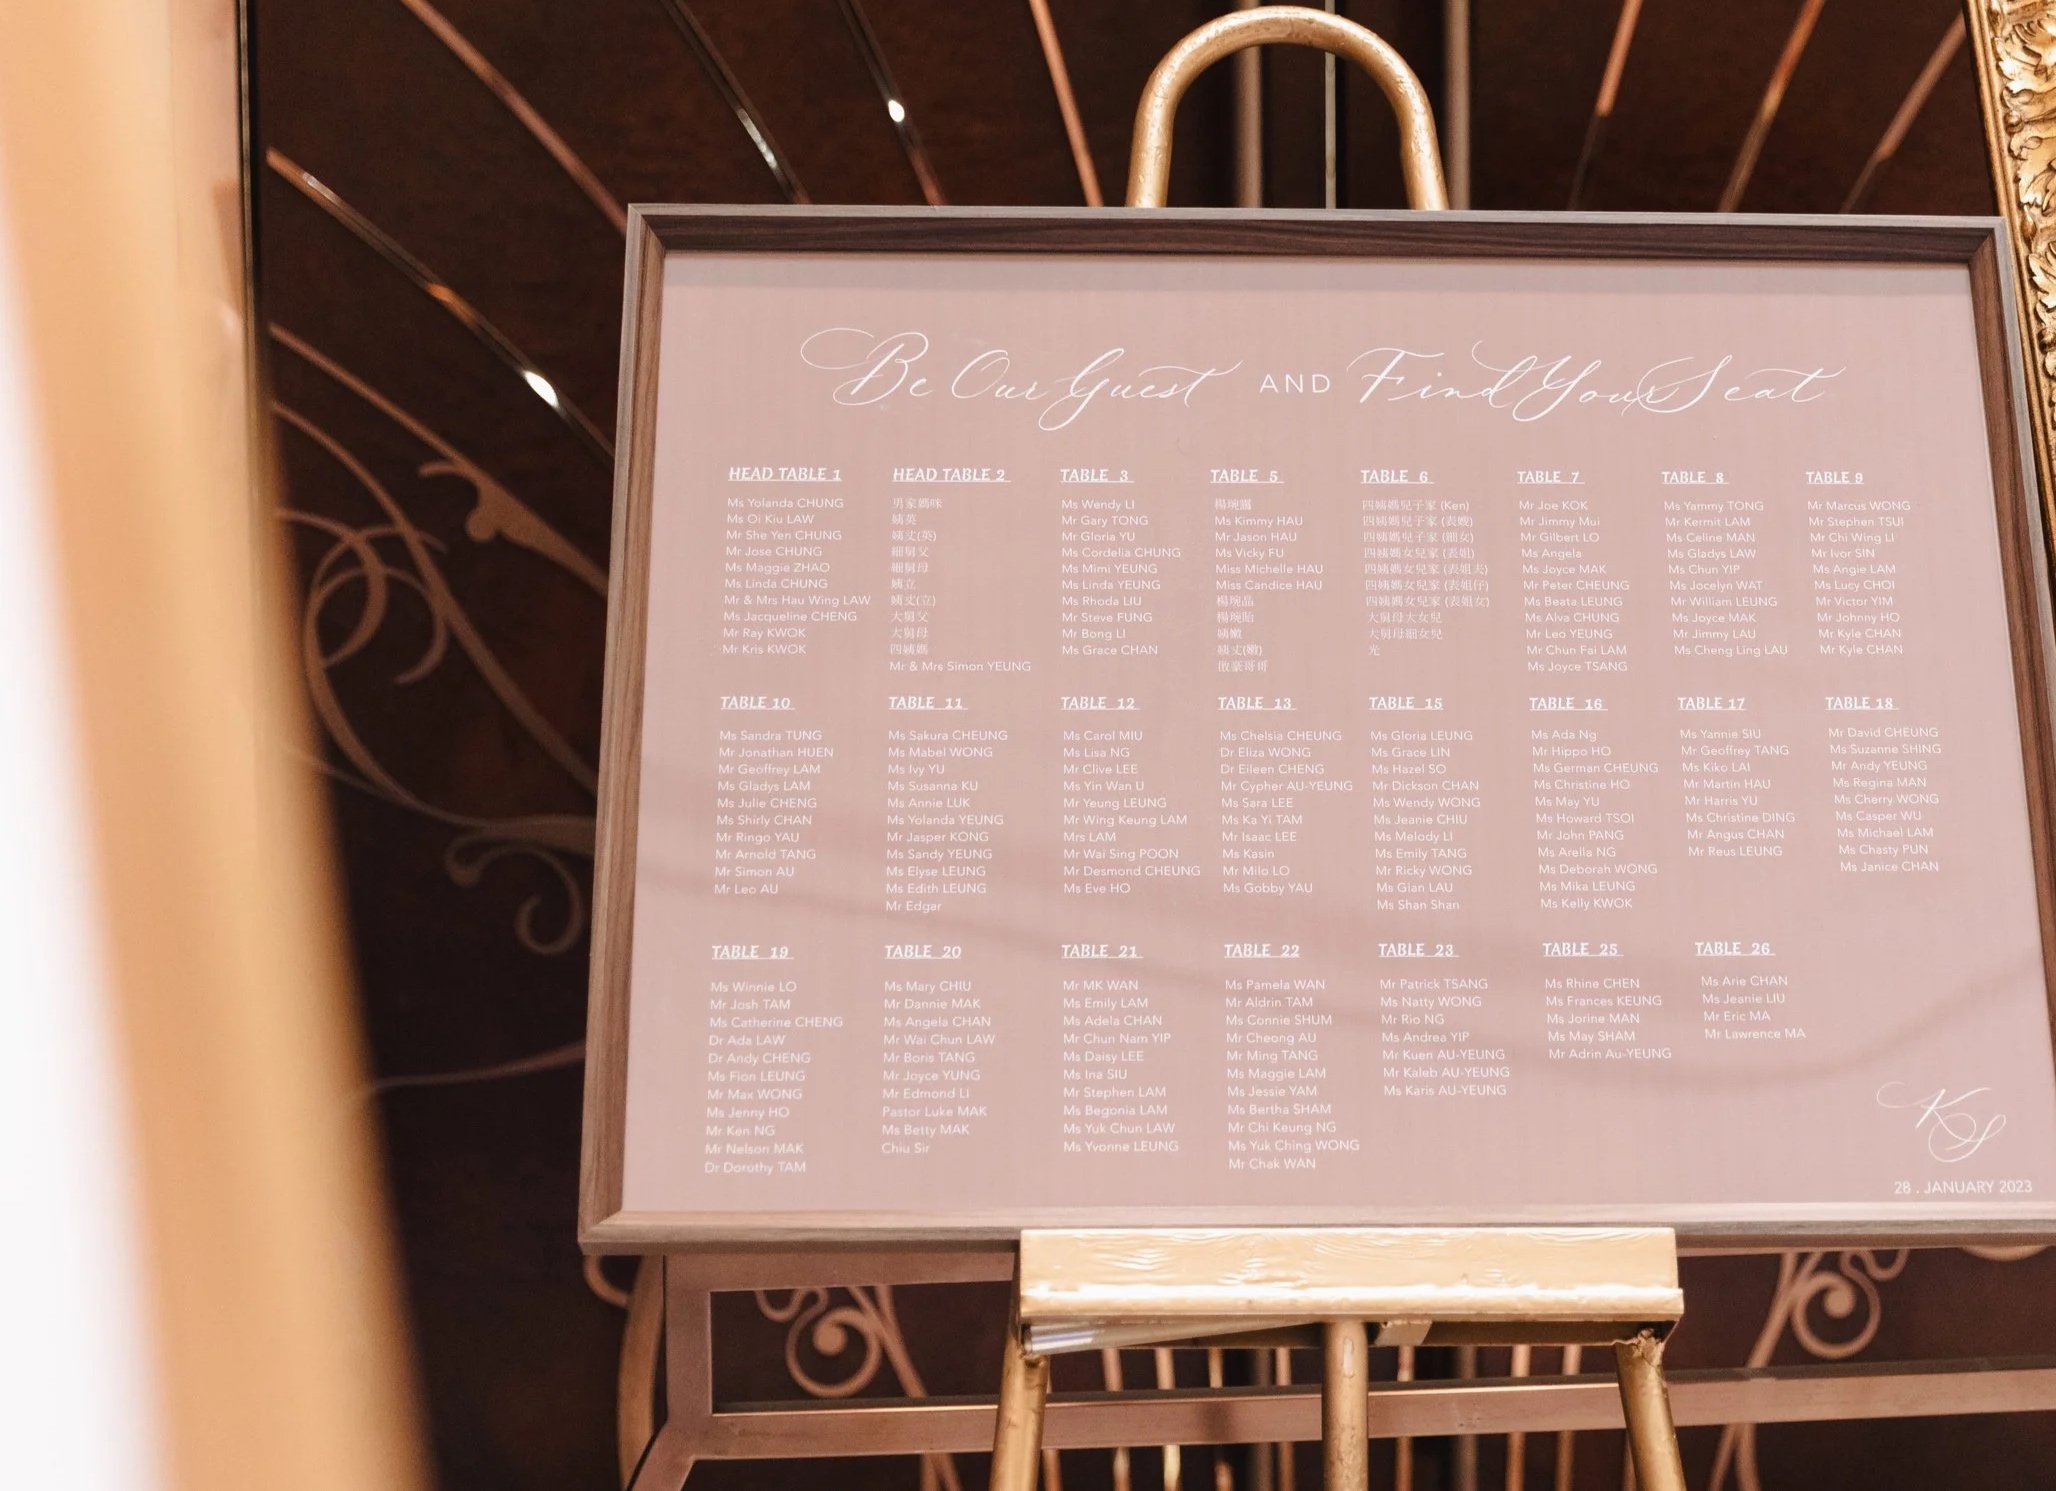 Be Our Guest AND Find Your Seat
HEAD TABLE 1
Ms Yolanda CHUNG
Ms Oi Kiu LAW
Mr She Yen CHUNG
Mr Jose CHUNG
Ms Maggie ZHAO
Ms Linda CHUNG
Mr & Mrs Hau Wing LAW
Ms Jacqueline CHENG
Mr Ray KWOK
Mr Kris KWOK
HEAD TABLE 2
男家媽咪
姨英
姨丈(英)
細舅父
細舅母
姨立
姨丈(立)
大舅父
大舅母
四姨媽
Mr & Mrs Simon YEUNG
TABLE 3
Ms Wendy LI
Mr Gary TONG
Mr Gloria YU
Ms Cordelia CHUNG
Ms Mimi YEUNG
Ms Linda YEUNG
Ms Rhoda LIU
Mr Steve FUNG
Mr Bong LI
Ms Grace CHAN
TABLE 5
Ms Kimmy HAU
Mr Jason HAU
Ms Vicky FU
Miss Michelle HAU
Miss Candice HAU
楊琬晶
楊琬貽
姨嫩
姨丈(嫩)
TABLE 6
四姨媽兒子家 (Ken)
四姨媽兒子家 (表嫂)
四姨媽兒子家 (細女)
四姨媽女兒家 (表姐)
四姨媽女兒家 (表姐夫)
四姨媽女兒家 (表姐仔)
四姨媽女兒家 (表姐女)
大舅母大女兒
大舅母細女兒
光
TABLE 7
Mr Joe KOK
Mr Jimmy Mui
Mr Gilbert LO
Ms Angela
Ms Joyce MAK
Mr Peter CHEUNG
Ms Beata LEUNG
Ms Alva CHUNG
Mr Leo YEUNG
Mr Chun Fai LAM
Ms Joyce TSANG
TABLE 8
Ms Yammy TONG
Mr Kermit LAM
Ms Celine MAN
Ms Gladys LAW
Ms Chun YIP
Ms Jocelyn WAT
Mr William LEUNG
Ms Joyce MAK
Mr Jimmy LAU
Ms Cheng Ling LAU
TABLE 9
Mr Marcus WONG
Mr Stephen TSUI
Mr Chi Wing LI
Mr Ivor SIN
Ms Angie LAM
Ms Lucy CHOI
Mr Victor YIM
Mr Johnny HO
Mr Kyle CHAN
Mr Kyle CHAN
TABLE 10
Ms Sandra TUNG
Mr Jonathan HUEN
Mr Geoffrey LAM
Ms Gladys LAM
Ms Julie CHENG
Ms Shirly CHAN
Mr Ringo YAU
Mr Arnold TANG
Mr Simon AU
Mr Leo AU
TABLE 11
Ms Sakura CHEUNG
Ms Mabel WONG
Ms Ivy YU
Ms Susanna KU
Ms Annie LUK
Ms Yolanda YEUNG
Mr Jasper KONG
Ms Sandy YEUNG
Ms Elyse LEUNG
Ms Edith LEUNG
Mr Edgar
TABLE 12
Ms Carol MIU
Ms Lisa NG
Mr Clive LEE
Ms Yin Wan U
Mr Yeung LEUNG
Mr Wing Keung LAM
Mrs LAM
Mr Wai Sing POON
Mr Desmond CHEUNG
Ms Eve HO
TABLE 13
Ms Chelsia CHEUNG
Dr Eliza WONG
Dr Eileen CHENG
Mr Cypher AU-YEUNG
Ms Sara LEE
Ms Ka Yi TAM
Mr Isaac LEE
Ms Kasin
Mr Milo LO
Ms Gobby YAU
TABLE 15
Ms Gloria LEUNG
Ms Grace LIN
Ms Hazel SO
Mr Dickson CHAN
Ms Wendy WONG
Ms Jeanie CHIU
Ms Melody LI
Ms Emily TANG
Mr Ricky WONG
Ms Gian LAU
Ms Shan Shan
TABLE 16
Ms Ada Ng
Mr Hippo HO
Ms German CHEUNG
Ms Christine HO
Ms May YU
Ms Howard TSOI
Mr John PANG
Ms Arella NG
Ms Deborah WONG
Ms Mika LEUNG
Ms Kelly KWOK
TABLE 17
Ms Yannie SIU
Mr Geoffrey TANG
Ms Kiko LAI
Mr Martin HAU
Mr Harris YU
Ms Christine DING
Mr Angus CHAN
Mr Reus LEUNG
TABLE 18
Mr David CHEUNG
Ms Suzanne SHING
Mr Andy YEUNG
Ms Regina MAN
Ms Cherry WONG
Ms Casper WU
Ms Michael LAM
Ms Chasty PUN
Ms Janice CHAN
TABLE 19
Ms Winnie LO
Mr Josh TAM
Ms Catherine CHENG
Dr Ada LAW
Dr Andy CHENG
Ms Fion LEUNG
Mr Max WONG
Ms Jenny HO
Mr Ken NG
Mr Nelson MAK
Dr Dorothy TAM
TABLE 20
Ms Mary CHIU
Mr Dannie MAK
Ms Angela CHAN
Mr Wai Chun LAW
Mr Boris TANG
Mr Joyce YUNG
Mr Edmond LI
Pastor Luke MAK
Ms Betty MAK
Chiu Sir
TABLE 21
Mr MK WAN
Ms Emily LAM
Ms Adela CHAN
Mr Chun Nam YIP
Ms Daisy LEE
Ms Ina SIU
Mr Stephen LAM
Ms Begonia LAM
Ms Yuk Chun LAW
Ms Yvonne LEUNG
TABLE 22
Ms Pamela WAN
Mr Aldrin TAM
Ms Connie SHUM
Mr Cheong AU
Mr Ming TANG
Ms Maggie LAM
Ms Jessie YAM
Ms Bertha SHAM
Mr Chi Keung NG
Ms Yuk Ching WONG
Mr Chak WAN
TABLE 23
Mr Patrick TSANG
Ms Natty WONG
Mr Rio NG
Ms Andrea YIP
Mr Kuen AU-YEUNG
Mr Kaleb AU-YEUNG
Ms Karis AU-YEUNG
TABLE 25
Ms Rhine CHEN
Ms Frances KEUNG
Ms Jorine MAN
Ms May SHAM
Mr Adrin Au-YEUNG
TABLE 26
Ms Arie CHAN
Ms Jeanie LIU
Mr Eric MA
Mr Lawrence MA
KS
28 . JANUARY 2023